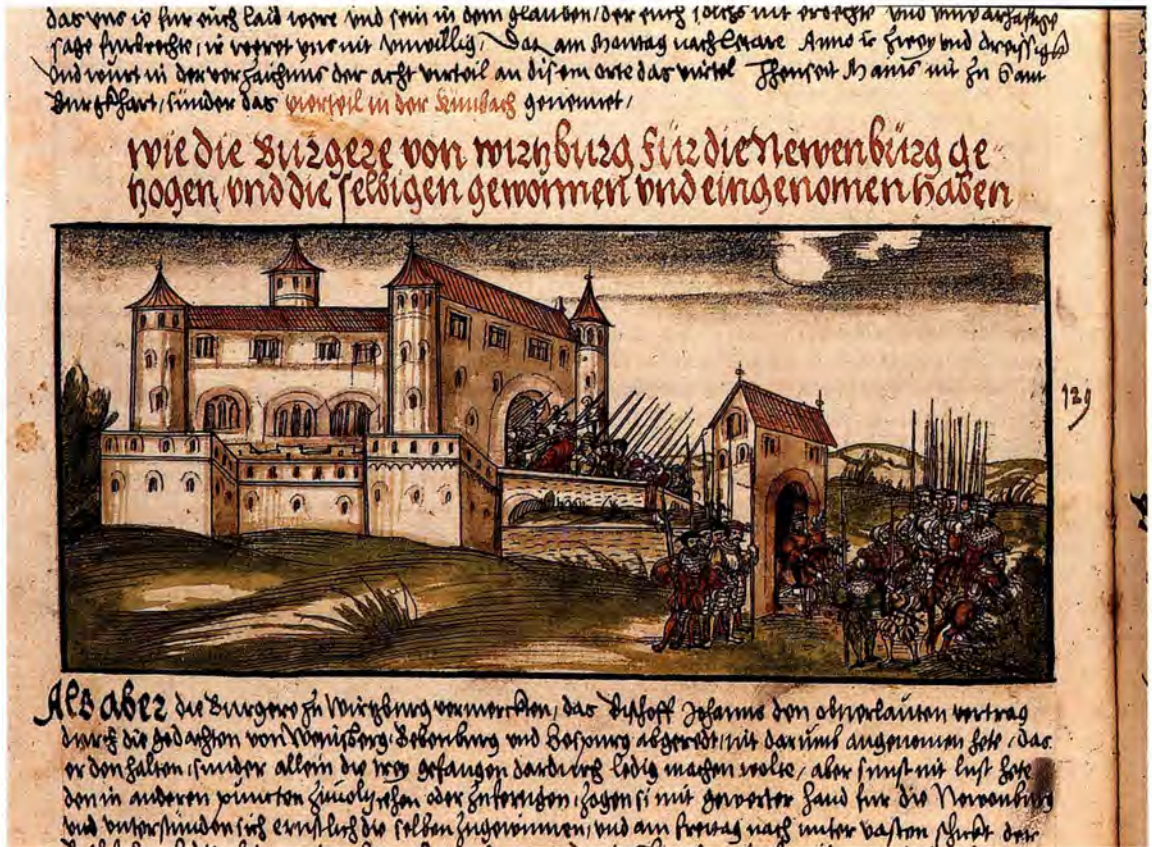 das uns ie fur euch laid were vnd sein in dem glauben / der euch solchs nit erdechte vnd vnwarhaftige
sage furbrechte, ir weret uns nit vnwillig, Dat. am Montag nach Letare Anno ic zwey vnd dreissigs
Vnd wurt in der verzaichnus der acht virteil an disem orte das virtel Jhenseit Mains nit zu Sant
Burckhart, sunder das vierteil in der genennet /
wie die Burgere von wirtzburg für die Newenbürg ge-
zogen, vnd die selbigen gewonnen vnd eingenomen haben
129
Als aber die Burgere zu Wirtzburg vermerckten, das Bischoff Johanns den obuerlauten vertrag
durch die gedachten von Weinsberg, Bebenburg vnd abgeredt, nit darumb angenomen hete, das
er den halten, sunder allein die gefangen dardurch ledig machen wolte, aber sunst nit lust hete
den in anderen puncten zuuolziehen oder zufertigen, zogen si mit gewerter hand fur die Newenburg
vnd vnterstunden sich ernstlich die selben zugewinnen, vnd am freitag nach miter vasten schickt der